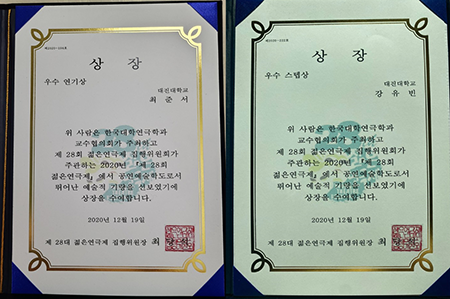 상 장
우수 연기상
대진대학교
최 준 서
위 사람은 한국대학연극학과
교수협의회가 주최하고
제 28회 젊은연극제 집행위원회가
주관하는 2020년 『제 28회
젊은연극제』에서 공연예술학도로서
뛰어난 예술적 기량을 선보였기에
상장을 수여합니다.
2020년 12월 19일
제 28대 젊은연극제 집행위원장 최
상 장
우수 스텝상
대진대학교
강 유 빈
위 사람은 한국대학연극학과
교수협의회가 주최하고
제 28회 젊은연극제 집행위원회가
주관하는 2020년 『제 28회
젊은연극제』에서 공연예술학도로서
뛰어난 예술적 기량을 선보였기에
상장을 수여합니다.
2020년 12월 19일
제 28대 젊은연극제 집행위원장 최